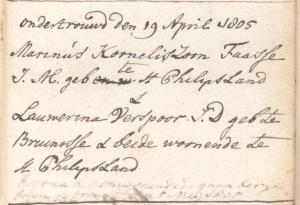 ondertrouwd den 19 April 1805
Marinus Korneliszoon Faasse
J. M. geb te St Philipsland
&
Laumerina Verspoor J. D geb te
Bruinisse & beide woonende te
St Philipsland